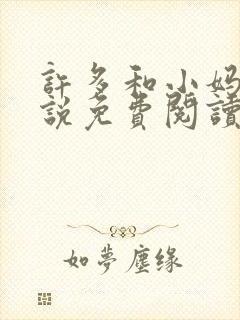 許多和小妈
說免費閱讀
如夢塵缘